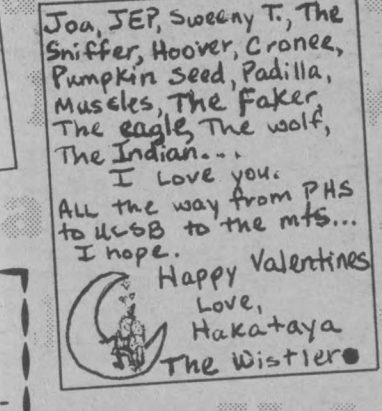 Joa, JEP, Sweeny T., The
Sniffer, Hoover, Cronee,
Pumpkin Seed, Padilla,
Muscles, The Faker,
The eagle, The wolf,
The Indian...
I Love you.
ALL the way from PHS
to UCSB to the mts...
I hope.
Happy Valentines
Love,
Hakataya
The Wistler